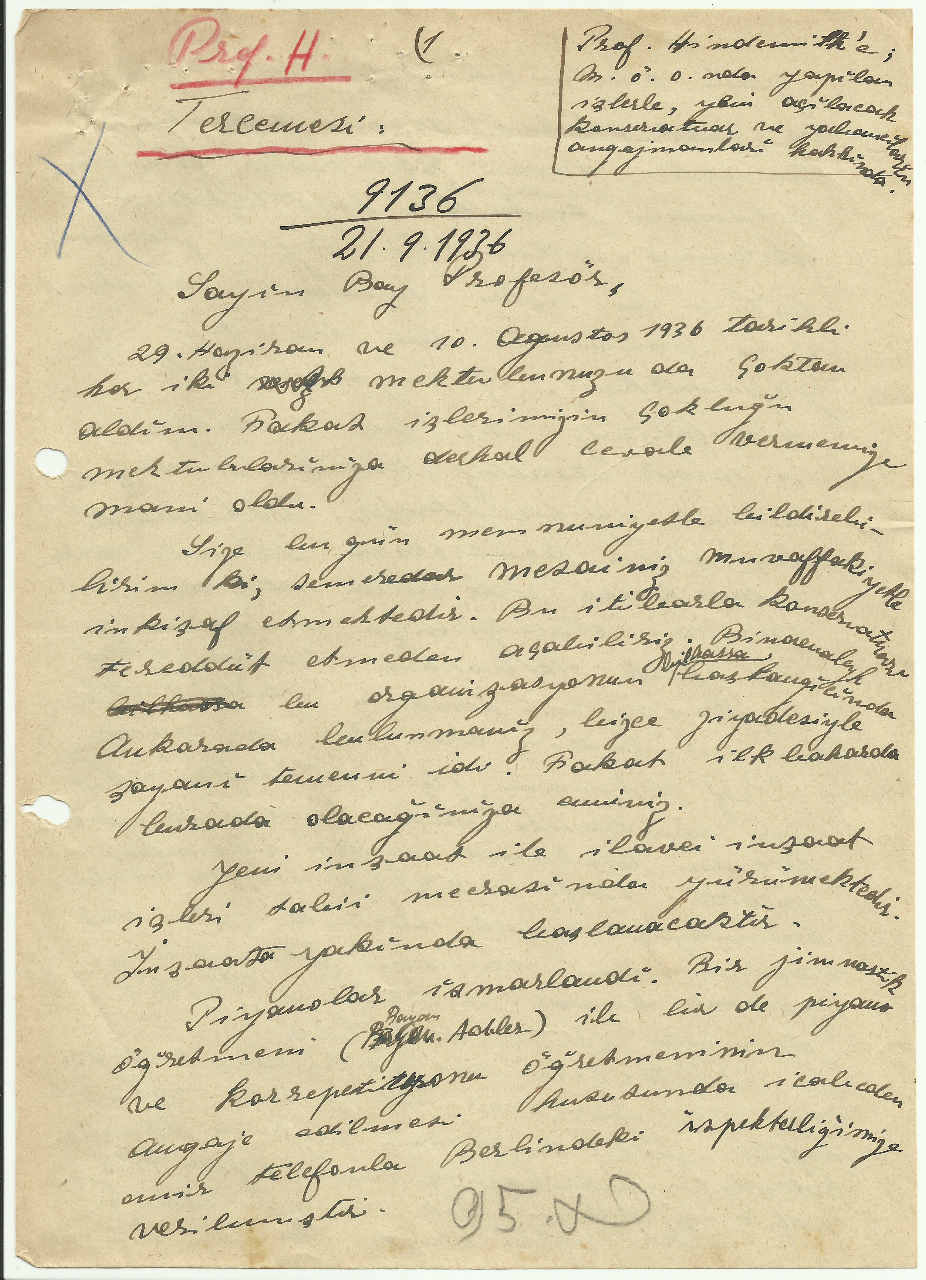 Prof. H.
(1
Tercemesi:
Prof. Hindemith'e;
M. ö. o. nda yapılan
işlerle, yeni açılacak
konservatuar ve yabancıların
angajmanları hakkında.
9136
21.9.1936
Sayın Bay Profesör,
29. Haziran ve 10. Agustos 1936 tarihli
her iki mektubunuzu da çoktan
aldım. Fakat işlerimizin çokluğu
mektublarınıza derhal cevab vermemize
mani oldu.
Size bu gün memnuniyetle bildirebi-
lirim ki, semeredar mesainiz muvaffakiyetle
inkişaf etmektedir. Bu itibarla konservatuarı
tereddüt etmeden açabiliriz. Binaenaleyh
bilhassa
bu organizasyonun başlangıcında
Ankarada bulunmanız, bizce ziyadesiyle
şayanı temenni idi. Fakat ilkbaharda
burada olacağınıza eminiz.
Yeni inşaat ile ilavei inşaat
işleri tabii mecrasında yürümektedir.
İnşaata yakında başlanacaktır.
Piyanolar ısmarlandı. Bir jimnastik
öğretmeni (Bayan Adler) ile bir de piyano
ve korrepetitör öğretmeninin
angaje edilmesi hususunda icabeden
emir telefonla Berlindeki ispekterliğimize
verilmiştir.
95.